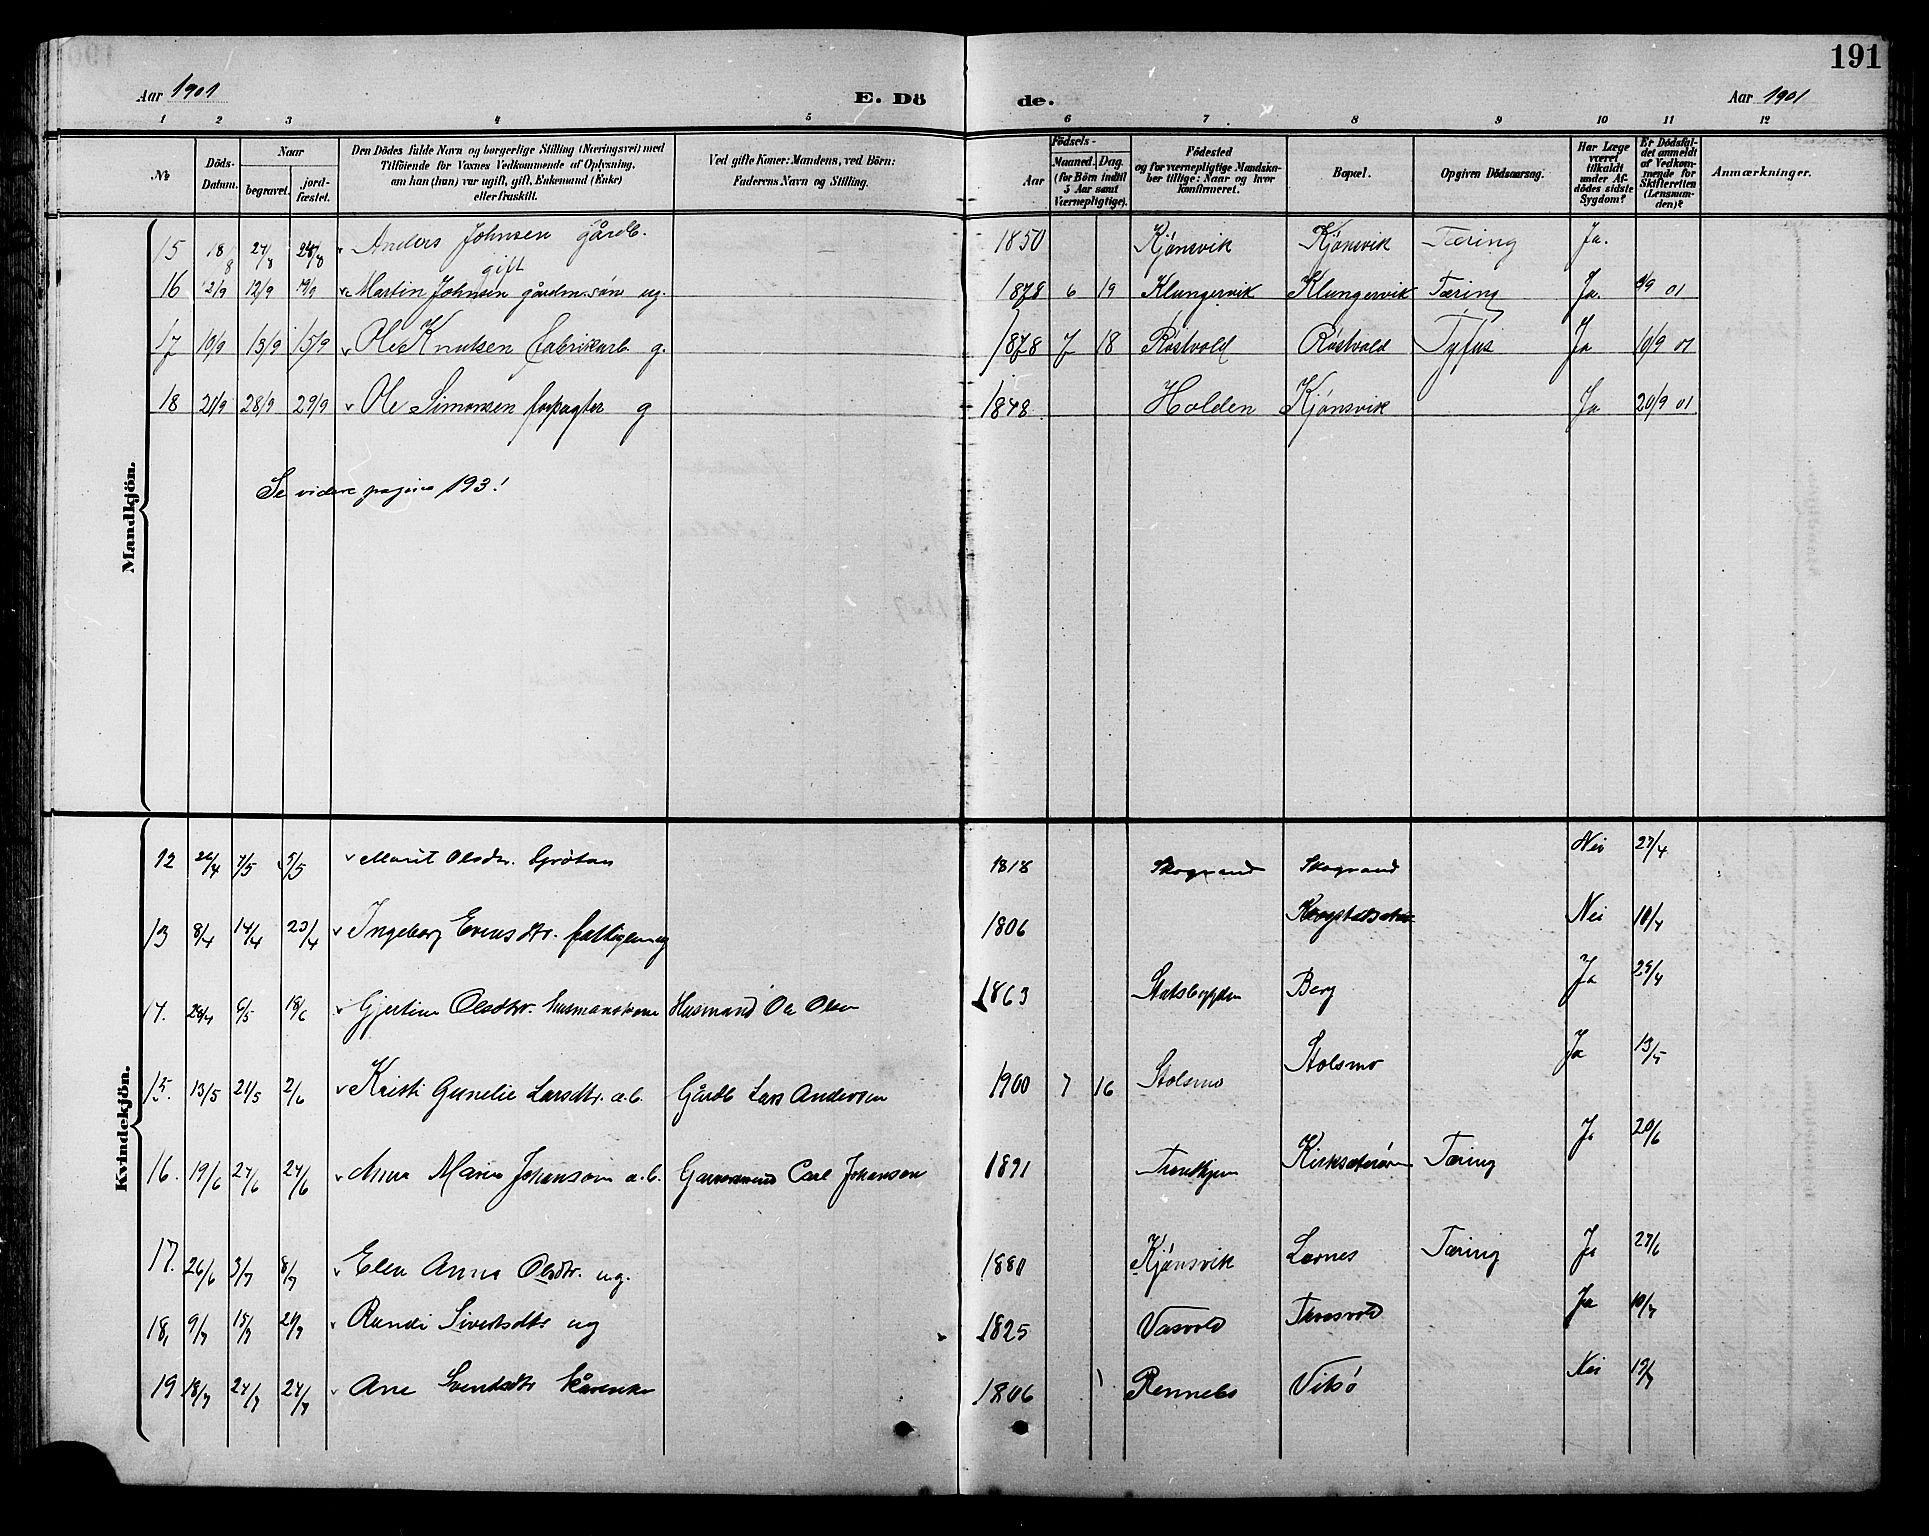 191
Aar 1901 E. Dö de. Aar 1901
1 2 3 4 5 6 7 8 9 10 11 12
No
Döds-Datum.
Naar
begravet.
jord-fæstet.
Den Dödes fulde Navn og borgerlige Stilling (Næringsvei) med
Tilföiende for Voxnes Vedkommende af Oplysning,
om han (hun) var ugift, gift, Enkemand (Enke)
eller fraskilt.
Ved gifte Koner: Mandens, ved Börn:
Faderens Navn og Stilling.
Födsels-
Aar
Maaned. Dag.
(for Börn indtil
5 Aar samt
Værnepligtige).
Födested
og for værnepligtige Mandska-
ber tillige: Naar og hvor
konfirmeret.
Bopæl.
Opgiven Dödsaarsag.
Har Læge
været
tilkaldt
under Af-
dödes sidste
Sygdom?
Er Dödsfal-
det anmeldt
af Vedkom-
mende for
Skifteretten
(Lensman-
den)?
Anmærkninger.
Mandkjön.
15 18/8 27/8 24/8 Anders Johnsen gårdb. gift 1850 Kjønsvik Kjønsvik Tæring Ja.
16 2/9 12/9 19/9 Martin Johnsen gårdm. søn ug. 1878 6 19 Klungervik Klungervik Tæring Ja. 4/9 01
17 10/9 15/9 15/9 Ole Knutsen fabrikarb. g. 1878 7 18 Røstvold Røstvold Tyfus Ja 11/9 01
18 21/9 28/9 29/9 Ole Simonsen forpagter g 1848 Holden Kjønsvik Ja 20/9 01
Se videre pagina 193!
Kvindekjön.
12 26/4 7/5 5/5 Marit Olsdtr. 1818 Skogrand Skogrand Nei 27/4
13 8/4 14/4 23/4 Ingeborg 1806 Nei 10/4
14. 24/4 6/5 18/6 Gjertine Olsdtr. husmanskone Husmand Ole Olsen 1863 Statsbygden Berg Ja 29/4
15. 13/5 21/5 2/6 Kristi Gunelie Larsdtr. a.b. Gårdb Lars Andersen 1900 7 16 Stolsmo Stolsmo Ja 13/5
16. 19/6 24/6 24/6 Anna Marie Johanson a.b. Carl Johanson 1891 Trondhjem Kirksæterøren Tæring Ja 20/6
17. 26/6 3/7 8/7 Elen Anna Olsdtr. ug. 1880 Kjønsvik Lernes Tæring Ja 27/6
18, 9/7 15/7 20/7 Randi Sivertsdtr ug 1825 Vasvold Ja 10/7
19 18/7 24/7 24/7 Ane Svendsdtr kårenke 1806 Rennebo Vitsø Nei 19/7